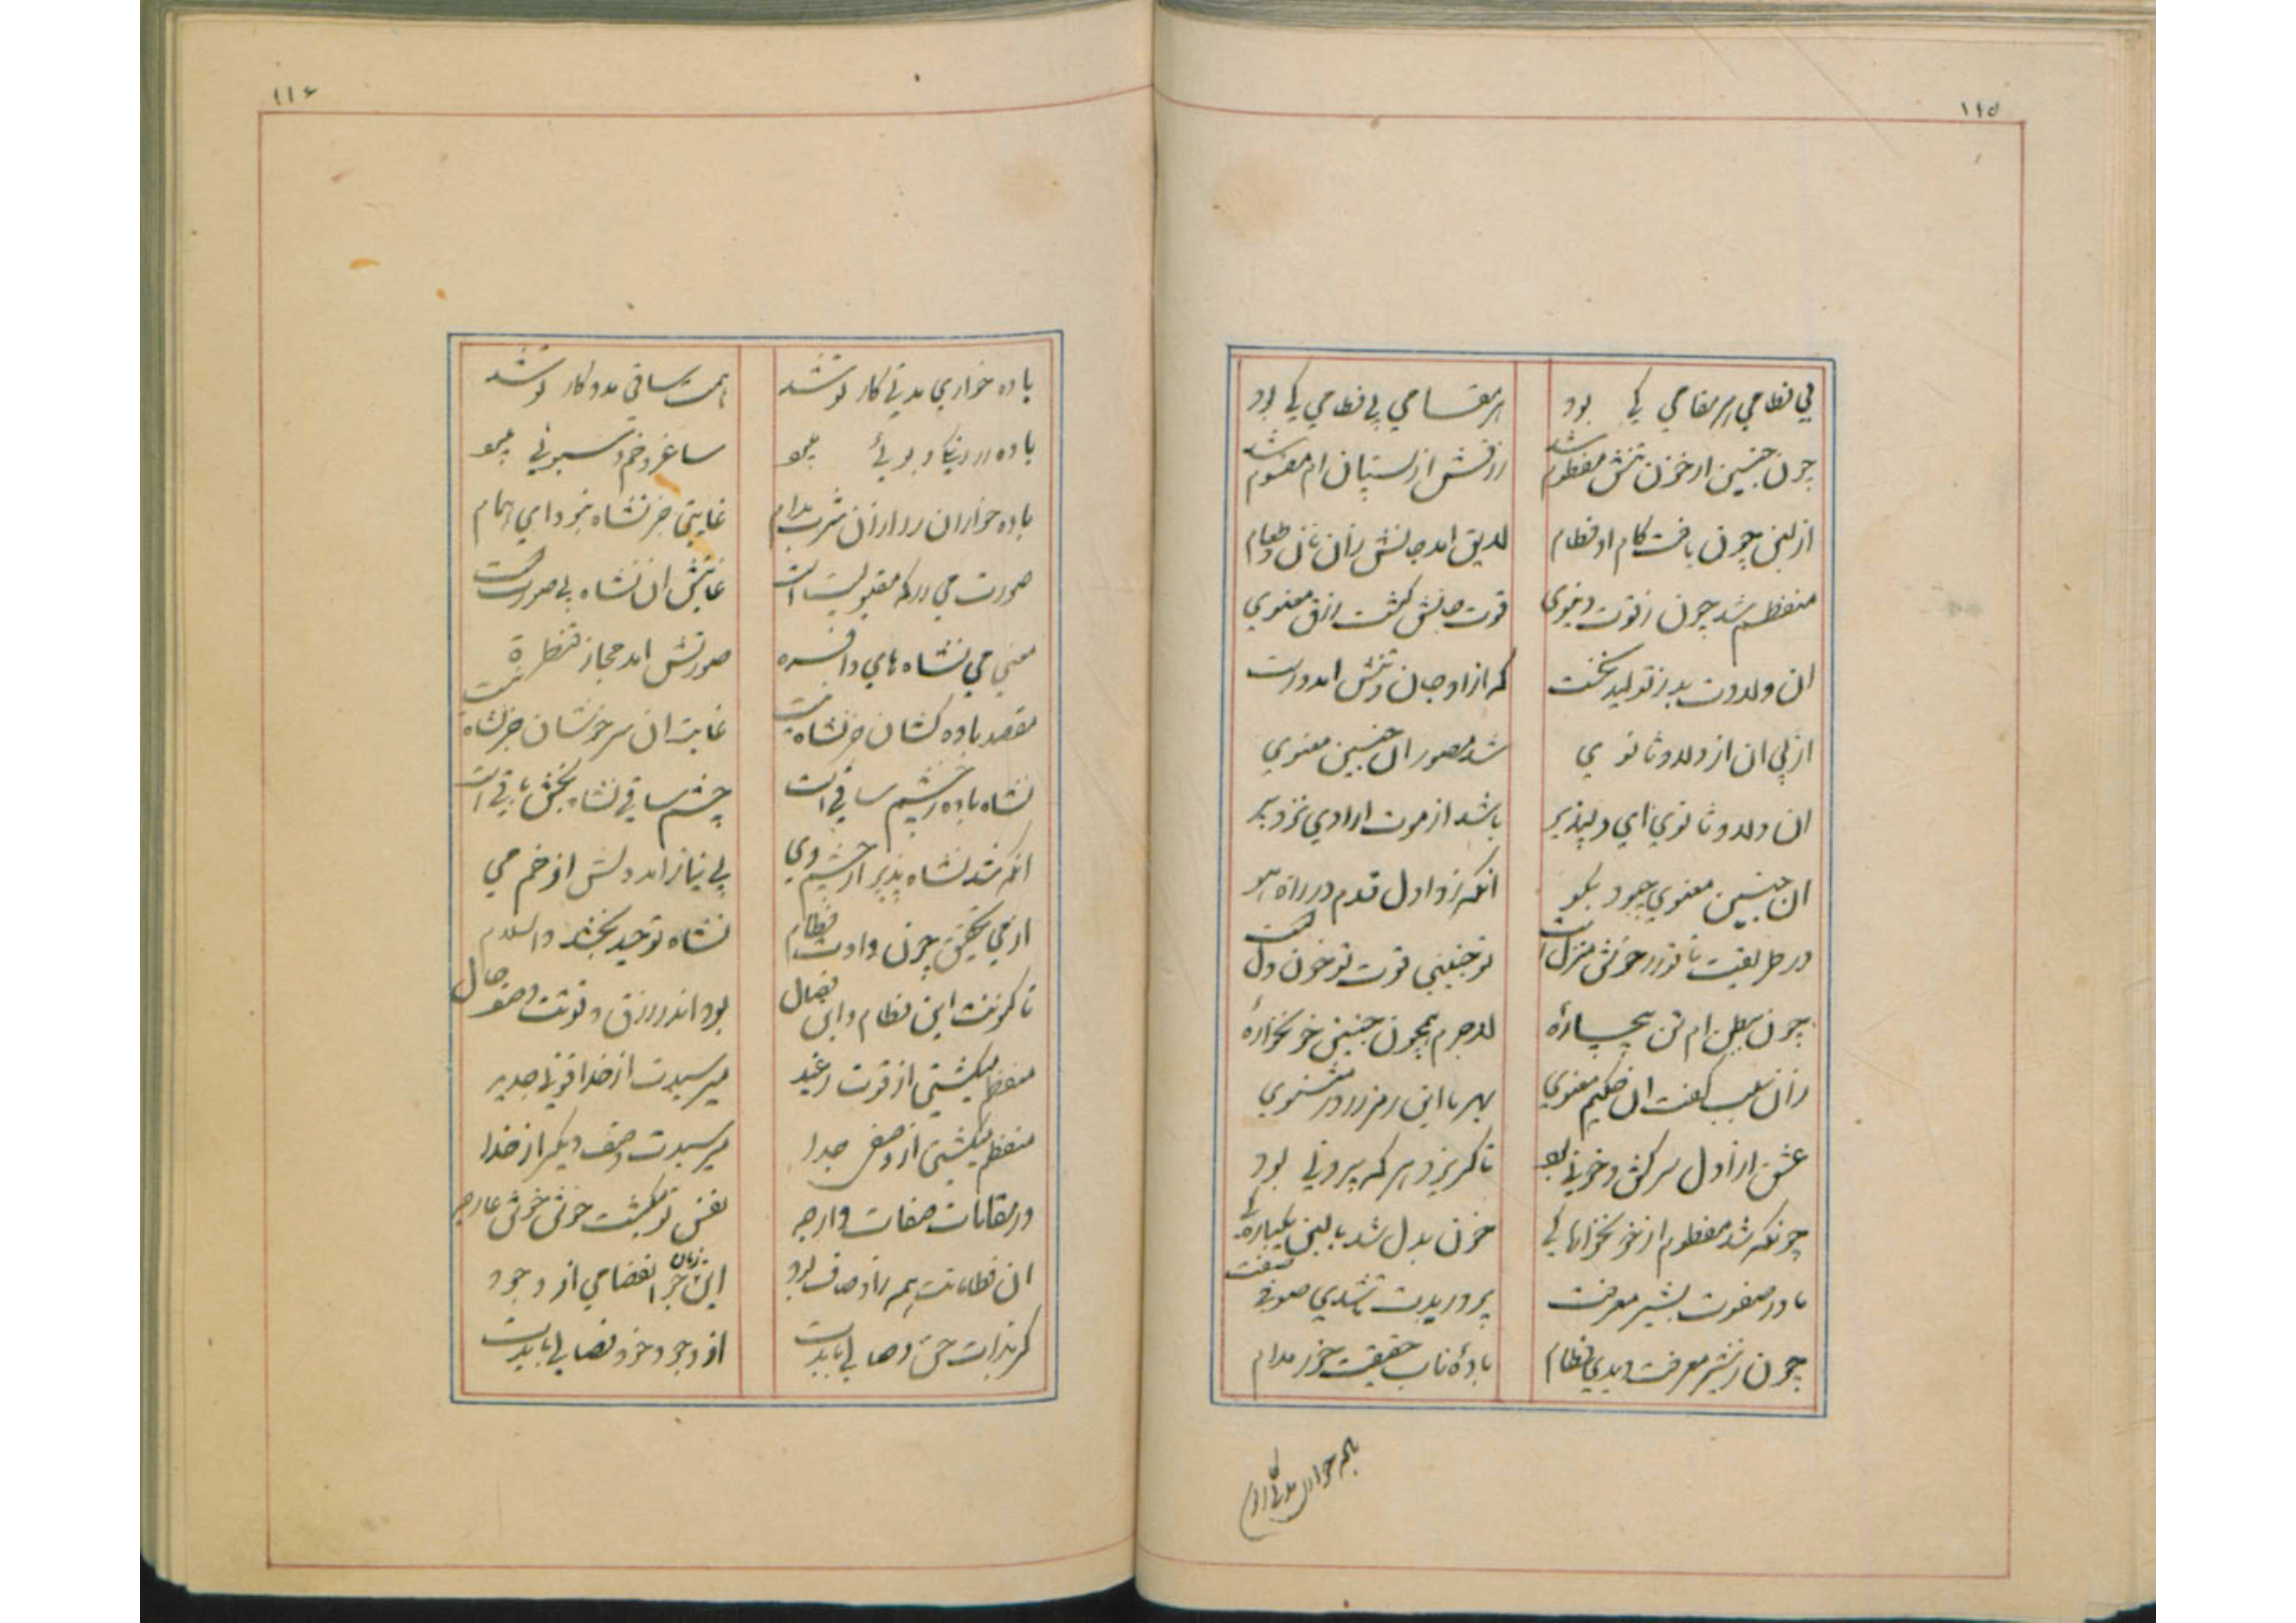 ۱۱۵
بی فطامی هر مقامی کی بود هر مقامی بی فطامی کی بود
چون جنین از خون تنش مفطوم شد رزقش از پستان ام مقسوم شد
از لبن چون یافت کام او فطام لایق امد جانش زان نان و طعام
منفطم شد چون ز قوت دنیوی قوت جانش گشت رزق معنوی
ان ولادت بد ز تولید نخست که ازاو جان و تنش امد درست
از پی ان از ولادوت ثانوی شد مصور ان جنین معنوی
ان ولادوت ثانوی ای دلپذیر باشد از موت ارادی نزد پیر
ان جنین معنوی چبود بگو انکه زد اول قدم در راه هو
در طریقت تا تو در خونش منزل است تو جنینی قوت تو خون دل است
چون ببطن ام تن بیچاره لاجرم همچون جنینی خونخواره
زان سبب گفت ان حکیم معنوی بهر ما این رمز در در مثنوی
عشق از اول سرکش و خونی بود تا گریزد هر که بیرونی بود
چونکه شد مفطوم از خونخوارهای خون بدل شد با لبن یکبارهای
مادر صفوت بشیر معرفت پرورید ت تا شدی صوفی صفت
چون ز شیر معرفت دیدی فطام باده ناب حقیقت خور مدام
۱۱۶
باده خواری مدتی کار تو شد همت ساقی مددکار تو شد
باده در دریا و جوئی بجو ساغر و خم و سبوئی بجو
باده خواران را ازان شرب مدام غایتی جز نشاه نبود ای همام
صورت می در که مقبولیت است غایتش ان نشاه بی صورت است
معنی می نشاه های وافره صورتش امد مجاز قنطره
مقصد باده کشان جز نشاه نیست غایت ان سرخوشان جز نشاه نیست
نشاه باده ز چشم ساقی است چشم ساقی نشاه بخش باقی است
انکه شد نشاه پذیر از چشم وی بی نیاز امد دلش از خم می
از می تحقیق چون دادت فطام نشاه توحید بخشد والسلام
تا کنونت این فطام و این فصال بود اندر رزق و قوتت وصف و حال
منفطم میگشتی از قوت رغید میرسیدت از خدا قوتی جدید
منفطم میگشتی از وصفی جدا میرسیدت وصف دیگر از خدا
در مقامات صفات وارجه نفس تو میگشت خوش خوش عارجه
ان فطامت هم ز اوصاف بود این زمان جز انفصامی از وجود
گر بذات حق وصالی بایدت از وجود خود فصالی بایدت